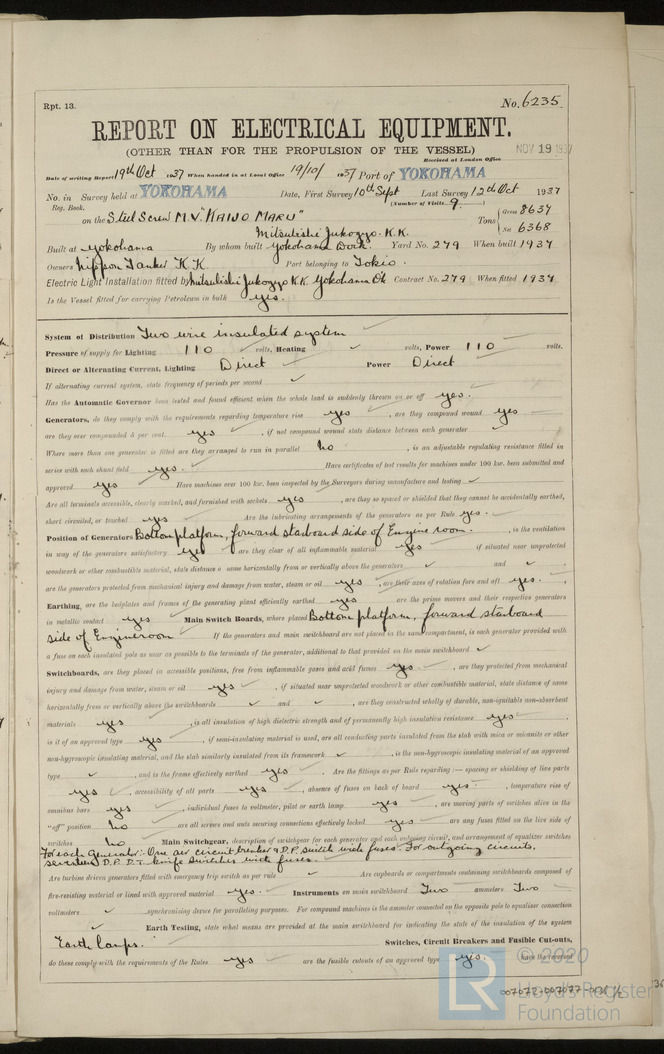 Rpt. 13.
No. 6235
REPORT ON ELECTRICAL EQUIPMENT.
(OTHER THAN FOR THE PROPULSION OF THE VESSEL)
NOV 19 1937
Received at London Office
Date of writing Report 19th Oct 1937 When handed in at Local Office 19/10/ 1937 Port of YOKOHAMA
No. in Survey held at YOKOHAMA Date, First Survey 10th Sept Last Survey 12th Oct 1937
Reg. Book. (Number of Visits 9.)
on the Steel Screw M.V. "KAIJO MARU" Tons Gross 8637 Net 6368
Mitsubishi Jukogyo K.K.
Built at Yokohama By whom built Yokohama Dock Yard No. 279 When built 1937
Owners Nippon Tanker K.K. Port belonging to Tokio.
Electric Light Installation fitted by Mitsubishi Jukogyo K.K. Yokohama Contract No. 279 When fitted 1937
Is the Vessel fitted for carrying Petroleum in bulk yes.
System of Distribution Two wire insulated system
Pressure of supply for Lighting 110 volts, Heating ✓ volts, Power 110 volts.
Direct or Alternating Current, Lighting Direct Power Direct
If alternating current system, state frequency of periods per second ✓
Has the Automatic Governor been tested and found efficient when the whole load is suddenly thrown on or off yes.
Generators, do they comply with the requirements regarding temperature rise yes, are they compound wound yes
are they over compounded 5 per cent. yes, if not compound wound state distance between each generator ✓
Where more than one generator is fitted are they arranged to run in parallel No, is an adjustable regulating resistance fitted in
series with each shunt field yes. Have certificates of test results for machines under 100 kw. been submitted and
approved yes Have machines over 100 kw. been inspected by the Surveyors during manufacture and testing ✓
Are all terminals accessible, clearly marked, and furnished with sockets yes, are they so spaced or shielded that they cannot be accidentally earthed,
short circuited, or touched yes Are the lubricating arrangements of the generators as per Rule yes.
Position of Generators Bottom platform, forward starboard side of Engine room., is the ventilation
in way of the generators satisfactory yes are they clear of all inflammable material yes if situated near unprotected
woodwork or other combustible material, state distance of same horizontally from or vertically above the generators ✓ and ✓,
are the generators protected from mechanical injury and damage from water, steam or oil yes, are their axes of rotation fore and aft yes.
Earthing, are the bedplates and frames of the generating plant efficiently earthed yes are the prime movers and their respective generators
in metallic contact yes Main Switch Boards, where placed Bottom platform, forward starboard
side of Engineroom If the generators and main switchboard are not placed in the same compartment, is each generator provided with
a fuse on each insulated pole as near as possible to the terminals of the generator, additional to that provided on the main switchboard ✓
Switchboards, are they placed in accessible positions, free from inflammable gases and acid fumes yes, are they protected from mechanical
injury and damage from water, steam or oil yes, if situated near unprotected woodwork or other combustible material, state distance of same
horizontally from or vertically above the switchboards ✓ and ✓, are they constructed wholly of durable, non-ignitable non-absorbent
materials yes, is all insulation of high dielectric strength and of permanently high insulation resistance yes,
is it of an approved type yes, if semi-insulating material is used, are all conducting parts insulated from the slab with mica or micanite or other
non-hygroscopic insulating material, and the slab similarly insulated from its framework ✓, is the non-hygroscopic insulating material of an approved
type ✓, and is the frame effectively earthed yes. Are the fittings as per Rule regarding :— spacing or shielding of live parts
yes, accessibility of all parts yes, absence of fuses on back of board yes, temperature rise of
omnibus bars yes, individual fuses to voltmeter, pilot or earth lamp yes, are moving parts of switches alive in the
"off" position No are all screws and nuts securing connections effectively locked yes are any fuses fitted on the live side of
switches No Main Switchgear, description of switchgear for each generator and each outgoing circuit, and arrangement of equalizer switches
For each Generator:- One air circuit breaker & D.P. switch with fuses. For outgoing circuits,
D.P. D.T. knife switches with fuses.
Are turbine driven generators fitted with emergency trip switch as per rule ✓ Are cupboards or compartments containing switchboards composed of
fire-resisting material or lined with approved material yes. Instruments on main switchboard Two ammeters Two
voltmeters ✓ synchronising device for paralleling purposes. For compound machines is the ammeter connected on the opposite pole to equaliser connection
✓ Earth Testing, state what means are provided at the main switchboard for indicating the state of the insulation of the system
Earth lamps. Switches, Circuit Breakers and Fusible Cut-outs,
do these comply with the requirements of the Rules yes are the fusible cutouts of an approved type yes. have the reversed
© 2020
Lloyd's Register
Foundation